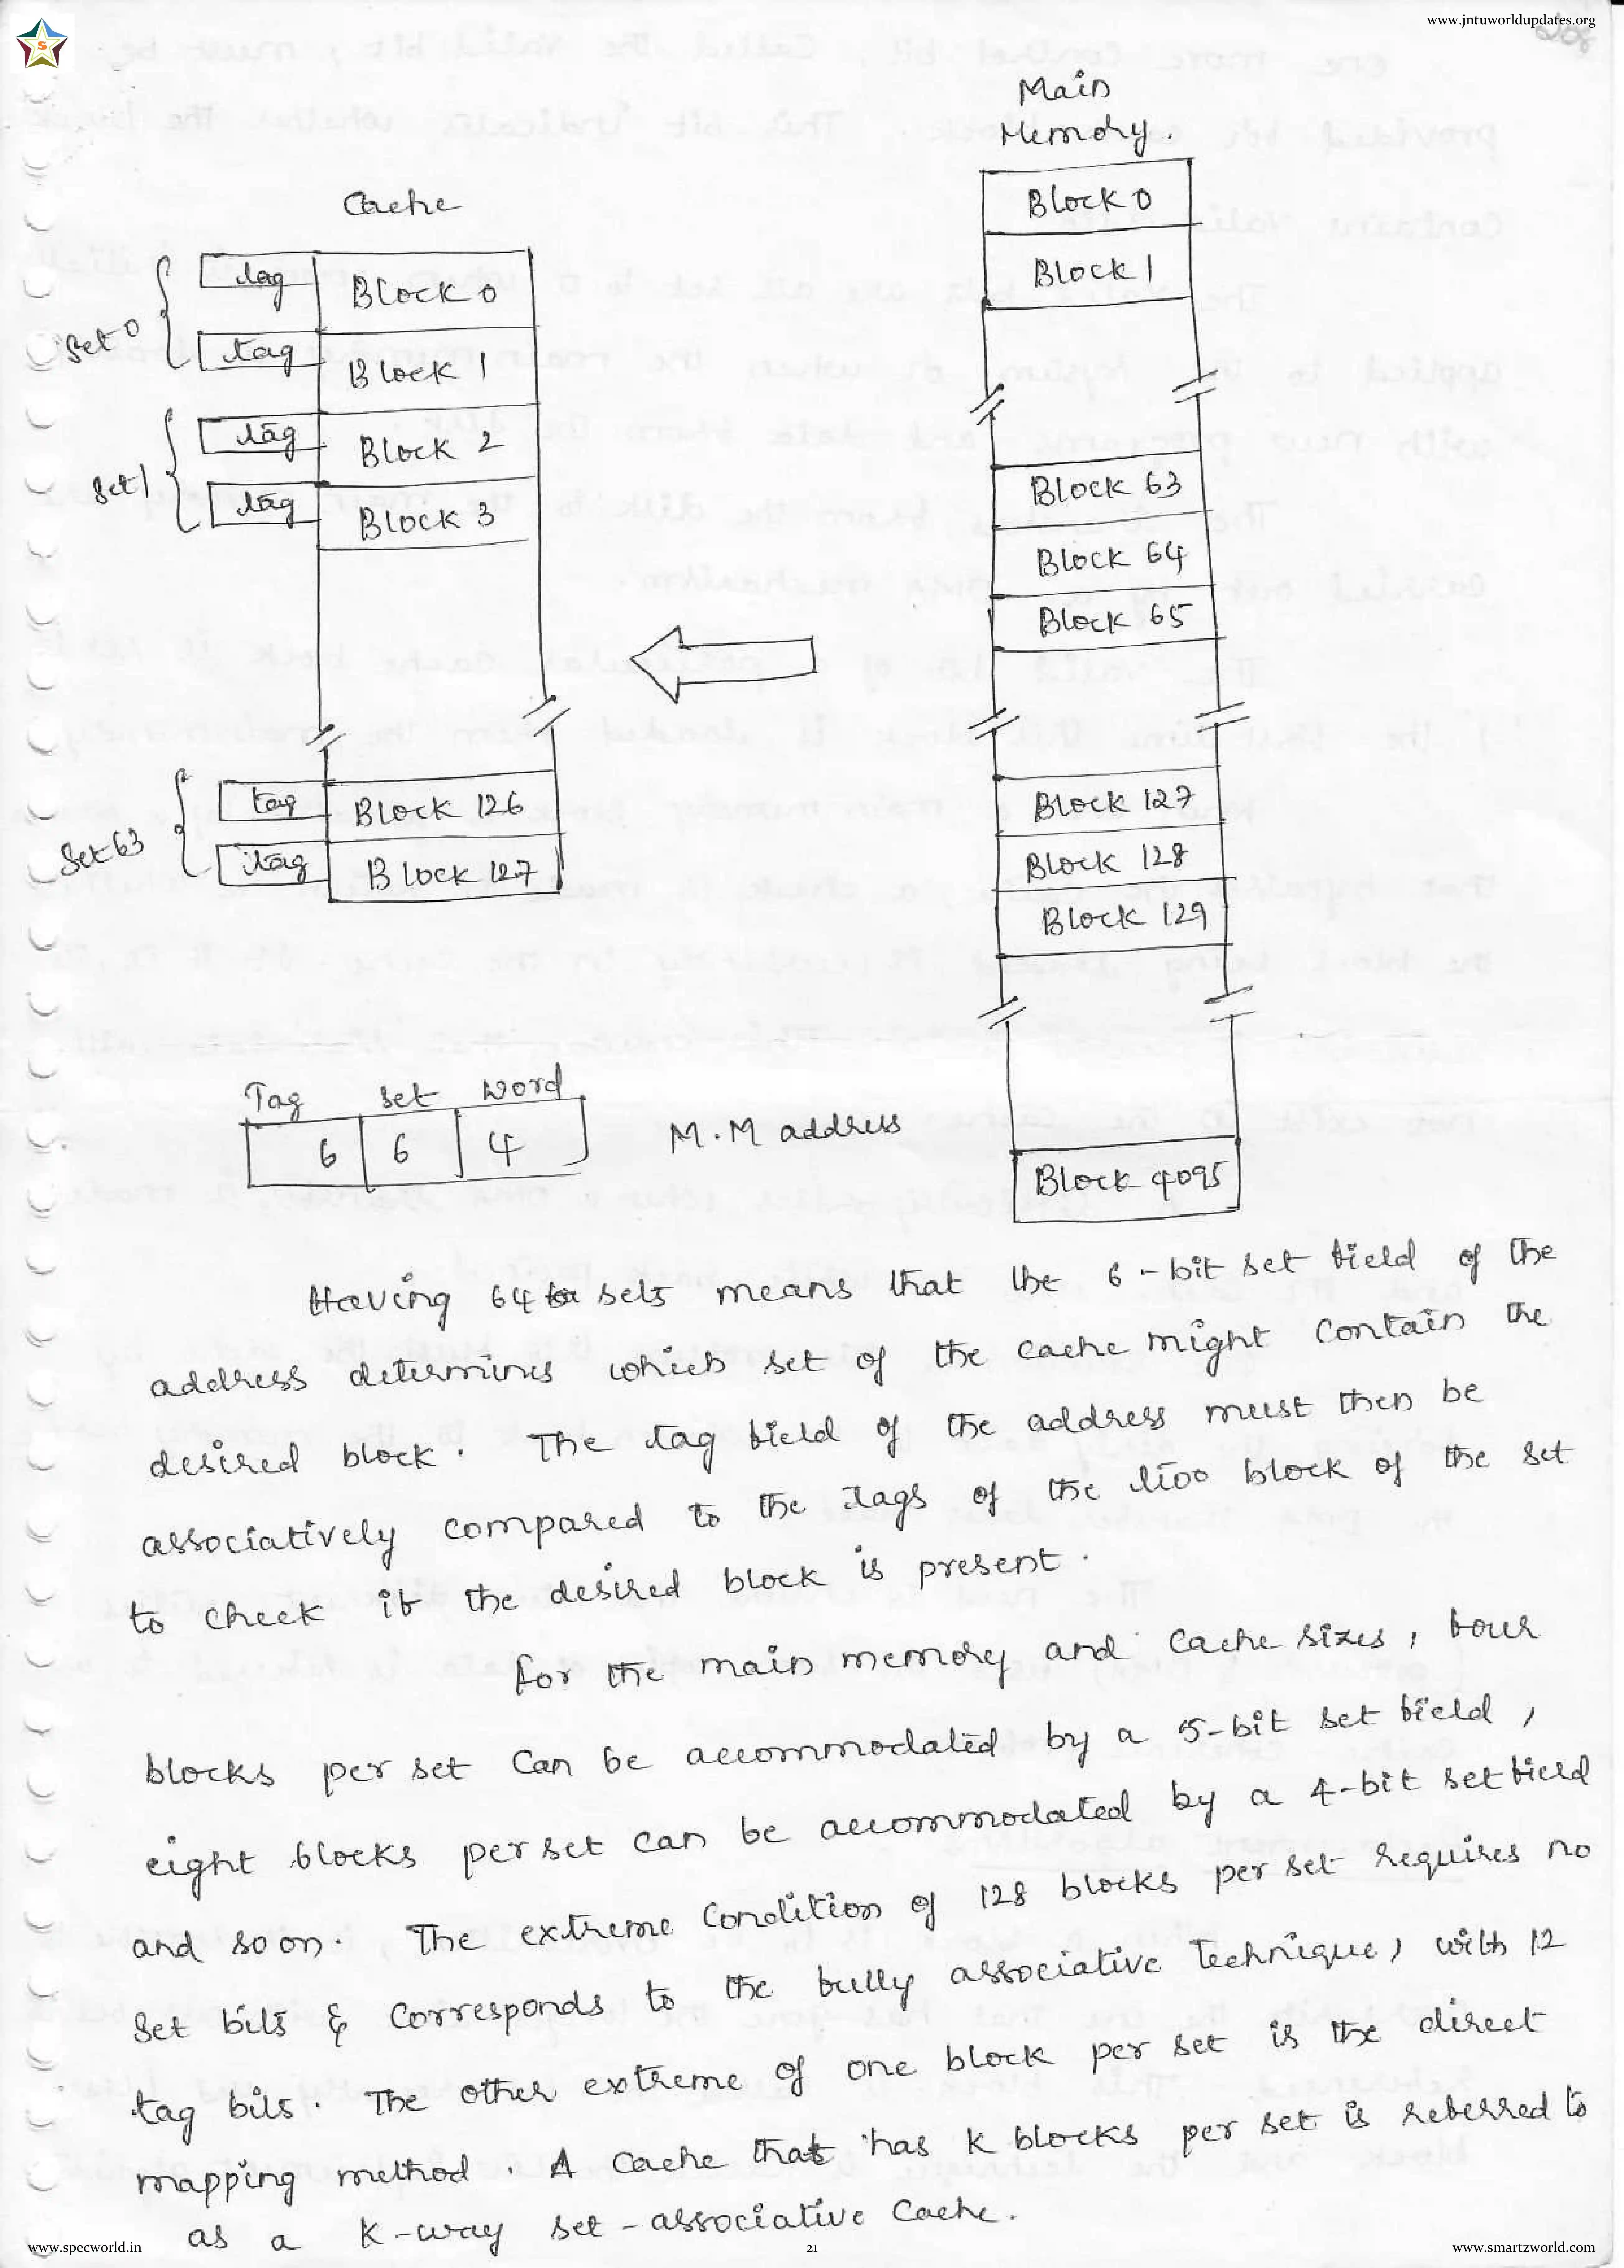 www.jntuworldupdates.org
S
Main
Memory.
Cache
Block 0
Block 1
tag Block 0
set 0
tag Block 1
tag Block 2
set 1
tag Block 3
Block 63
Block 64
Block 65
tag Block 126
set 63
tag Block 127
Block 127
Block 128
Block 129
Tag set word
6 6 4
M.M address
Block 4095
Having 64 sets means that the 6-bit set field of the
address determines which set of the cache might contain the
desired block. The tag field of the address must then be
associatively compared to the tags of the two block of the set
to check if the desired block is present.
for the main memory and cache sizes, four
blocks per set can be accommodated by a 5-bit set field,
eight blocks per set can be accommodated by a 4-bit set field
and so on. The extreme condition of 128 blocks per set requires no
set bits & corresponds to the fully associative technique, with 12
tag bits. The other extreme of one block per set is the direct
mapping method. A cache that has k blocks per set is referred to
as a k-way set-associative cache.
www.specworld.in
21
www.smartzworld.com